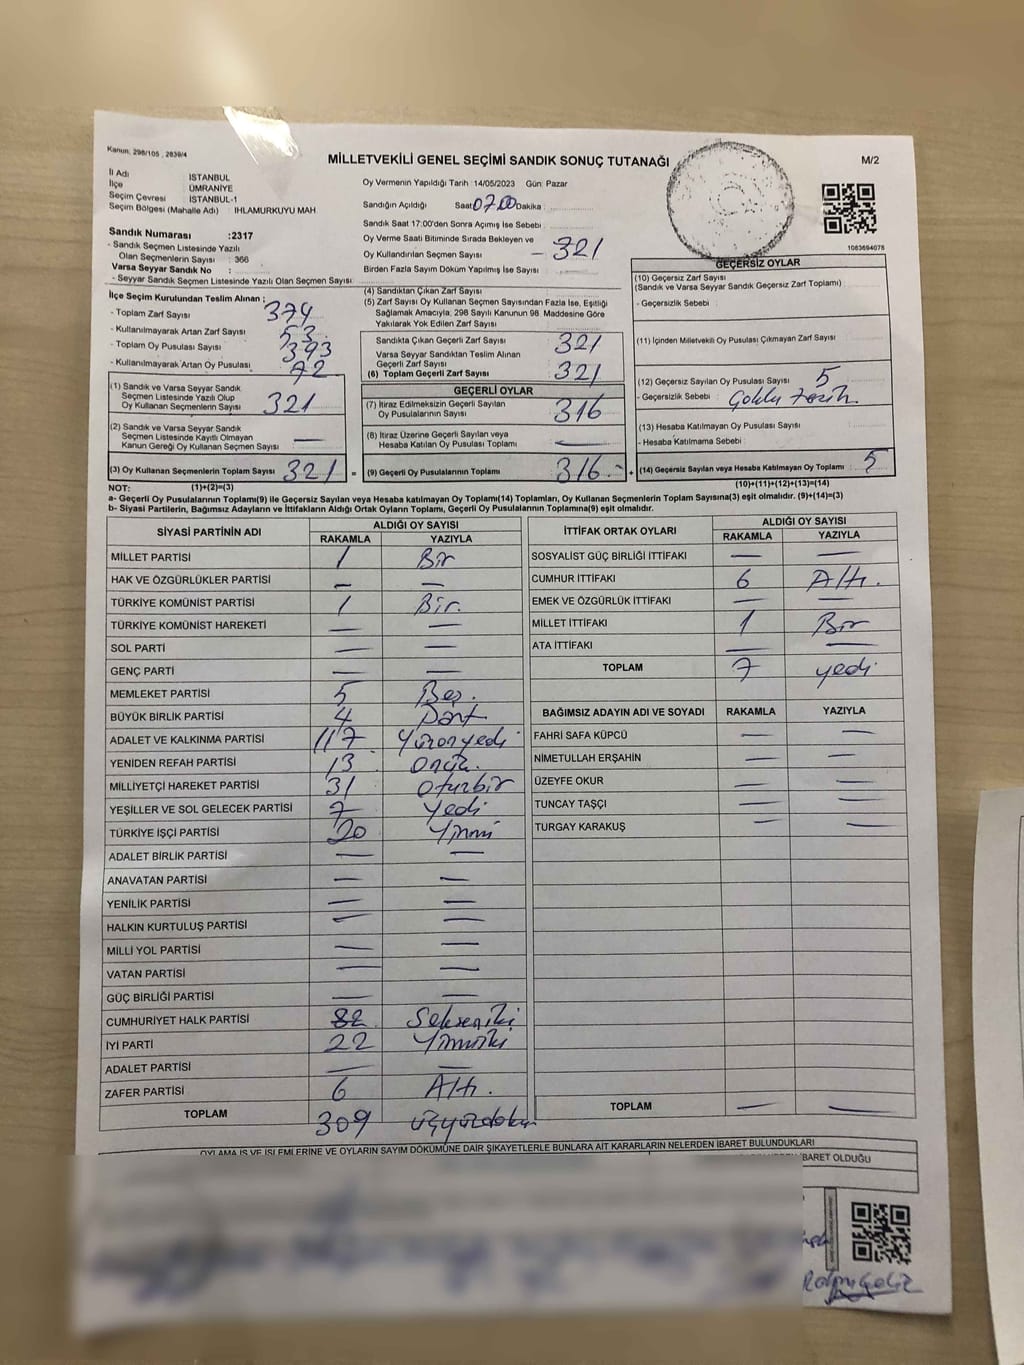 Kanun, 298/105 , 2839/4
MİLLETVEKİLİ GENEL SEÇİMİ SANDIK SONUÇ TUTANAĞI
M/2
İl Adı İSTANBUL
İlçe ÜMRANİYE
Seçim Çevresi İSTANBUL-1
Seçim Bölgesi (Mahalle Adı) IHLAMURKUYU MAH
Sandık Numarası :2317
- Sandık Seçmen Listesinde Yazılı
Olan Seçmenlerin Sayısı : 366
Varsa Seyyar Sandık No :
- Seyyar Sandık Seçmen Listesinde Yazılı Olan Seçmen Sayısı
İlçe Seçim Kurulundan Teslim Alınan ;
- Toplam Zarf Sayısı 374
- Kullanılmayarak Artan Zarf Sayısı 53
- Toplam Oy Pusulası Sayısı 393
- Kullanılmayarak Artan Oy Pusulası 72
(1) Sandık ve Varsa Seyyar Sandık
Seçmen Listesinde Yazılı Olup
Oy Kullanan Seçmenlerin Sayısı 321
(2) Sandık ve Varsa Seyyar Sandık
Seçmen Listesinde Kayıtlı Olmayan
Kanun Gereği Oy Kullanan Seçmen Sayısı —
(3) Oy Kullanan Seçmenlerin Toplam Sayısı 321 =
Oy Vermenin Yapıldığı Tarih :14/05/2023 Gün: Pazar
Sandığın Açıldığı Saat 07.00 Dakika :
Sandık Saat 17:00'den Sonra Açımış İse Sebebi :
Oy Verme Saati Bitiminde Sırada Bekleyen ve
Oy Kullandırılan Seçmen Sayısı — 321
Birden Fazla Sayım Döküm Yapılmış İse Sayısı
(4) Sandıktan Çıkan Zarf Sayısı
(5) Zarf Sayısı Oy Kullanan Seçmen Sayısından Fazla İse, Eşitliği
Sağlamak Amacıyla, 298 Sayılı Kanunun 98. Maddesine Göre
Yakılarak Yok Edilen Zarf Sayısı
Sandıkta Çıkan Geçerli Zarf Sayısı 321
Varsa Seyyar Sandıktan Teslim Alınan
Geçerli Zarf Sayısı
(6) Toplam Geçerli Zarf Sayısı 321
GEÇERLİ OYLAR
(7) İtiraz Edilmeksizin Geçerli Sayılan
Oy Pusulalarının Sayısı 316
(8) İtiraz Üzerine Geçerli Sayılan veya
Hesaba Katılan Oy Pusulası Toplamı —
(9) Geçerli Oy Pusulalarının Toplamı 316 +
1083694078
GEÇERSİZ OYLAR
(10) Geçersiz Zarf Sayısı
(Sandık ve Varsa Seyyar Sandık Geçersiz Zarf Toplamı)
- Geçersizlik Sebebi :
(11) İçinden Milletvekili Oy Pusulası Çıkmayan Zarf Sayısı
(12) Geçersiz Sayılan Oy Pusulası Sayısı 5
- Geçersizlik Sebebi :
(13) Hesaba Katılmayan Oy Pusulası Sayısı
- Hesaba Katılmama Sebebi :
(14) Geçersiz Sayılan veya Hesaba Katılmayan Oy Toplamı : 5
NOT: (1)+(2)=(3)
(10)+(11)+(12)+(13)=(14)
a- Geçerli Oy Pusulalarının Toplamı(9) ile Geçersiz Sayılan veya Hesaba katılmayan Oy Toplamı(14) Toplamları, Oy Kullanan Seçmenlerin Toplam Sayısına(3) eşit olmalıdır. (9)+(14)=(3)
b- Siyasi Partilerin, Bağımsız Adayların ve İttifakların Aldığı Ortak Oyların Toplamı, Geçerli Oy Pusulalarının Toplamına(9) eşit olmalıdır.
SİYASİ PARTİNİN ADI ALDIĞI OY SAYISI
RAKAMLA YAZIYLA
MİLLET PARTİSİ 1 Bir
HAK VE ÖZGÜRLÜKLER PARTİSİ — —
TÜRKİYE KOMÜNİST PARTİSİ 1 Bir.
TÜRKİYE KOMÜNİST HAREKETİ — —
SOL PARTİ — —
GENÇ PARTİ — —
MEMLEKET PARTİSİ 5 Beş.
BÜYÜK BİRLİK PARTİSİ 4 Dört.
ADALET VE KALKINMA PARTİSİ 117 Yüzonyedi
YENİDEN REFAH PARTİSİ 13 Onüç.
MİLLİYETÇİ HAREKET PARTİSİ 31 Otuzbir
YEŞİLLER VE SOL GELECEK PARTİSİ 7 Yedi
TÜRKİYE İŞÇİ PARTİSİ 20 Yirmi
ADALET BİRLİK PARTİSİ — —
ANAVATAN PARTİSİ — —
YENİLİK PARTİSİ — —
HALKIN KURTULUŞ PARTİSİ — —
MİLLİ YOL PARTİSİ — —
VATAN PARTİSİ — —
GÜÇ BİRLİĞİ PARTİSİ — —
CUMHURİYET HALK PARTİSİ 82 Sekseniki
İYİ PARTİ 22 Yirmiiki
ADALET PARTİSİ — —
ZAFER PARTİSİ 6 Altı.
TOPLAM 309 üçyüzdokuz
İTTİFAK ORTAK OYLARI ALDIĞI OY SAYISI
RAKAMLA YAZIYLA
SOSYALİST GÜÇ BİRLİĞİ İTTİFAKI — —
CUMHUR İTTİFAKI 6 Altı.
EMEK VE ÖZGÜRLÜK İTTİFAKI — —
MİLLET İTTİFAKI 1 Bir
ATA İTTİFAKI — —
TOPLAM 7 yedi
BAĞIMSIZ ADAYIN ADI VE SOYADI RAKAMLA YAZIYLA
FAHRİ SAFA KÜPCÜ — —
NİMETULLAH ERŞAHİN — —
ÜZEYFE OKUR — —
TUNCAY TAŞÇI — —
TURGAY KARAKUŞ — —
TOPLAM — —
OYLAMA İŞ VE İŞLEMLERİNE VE OYLARIN SAYIM DÖKÜMÜNE DAİR ŞİKAYETLERLE BUNLARA AİT KARARLARIN NELERDEN İBARET BULUNDUKLARI
İBARET OLDUĞU